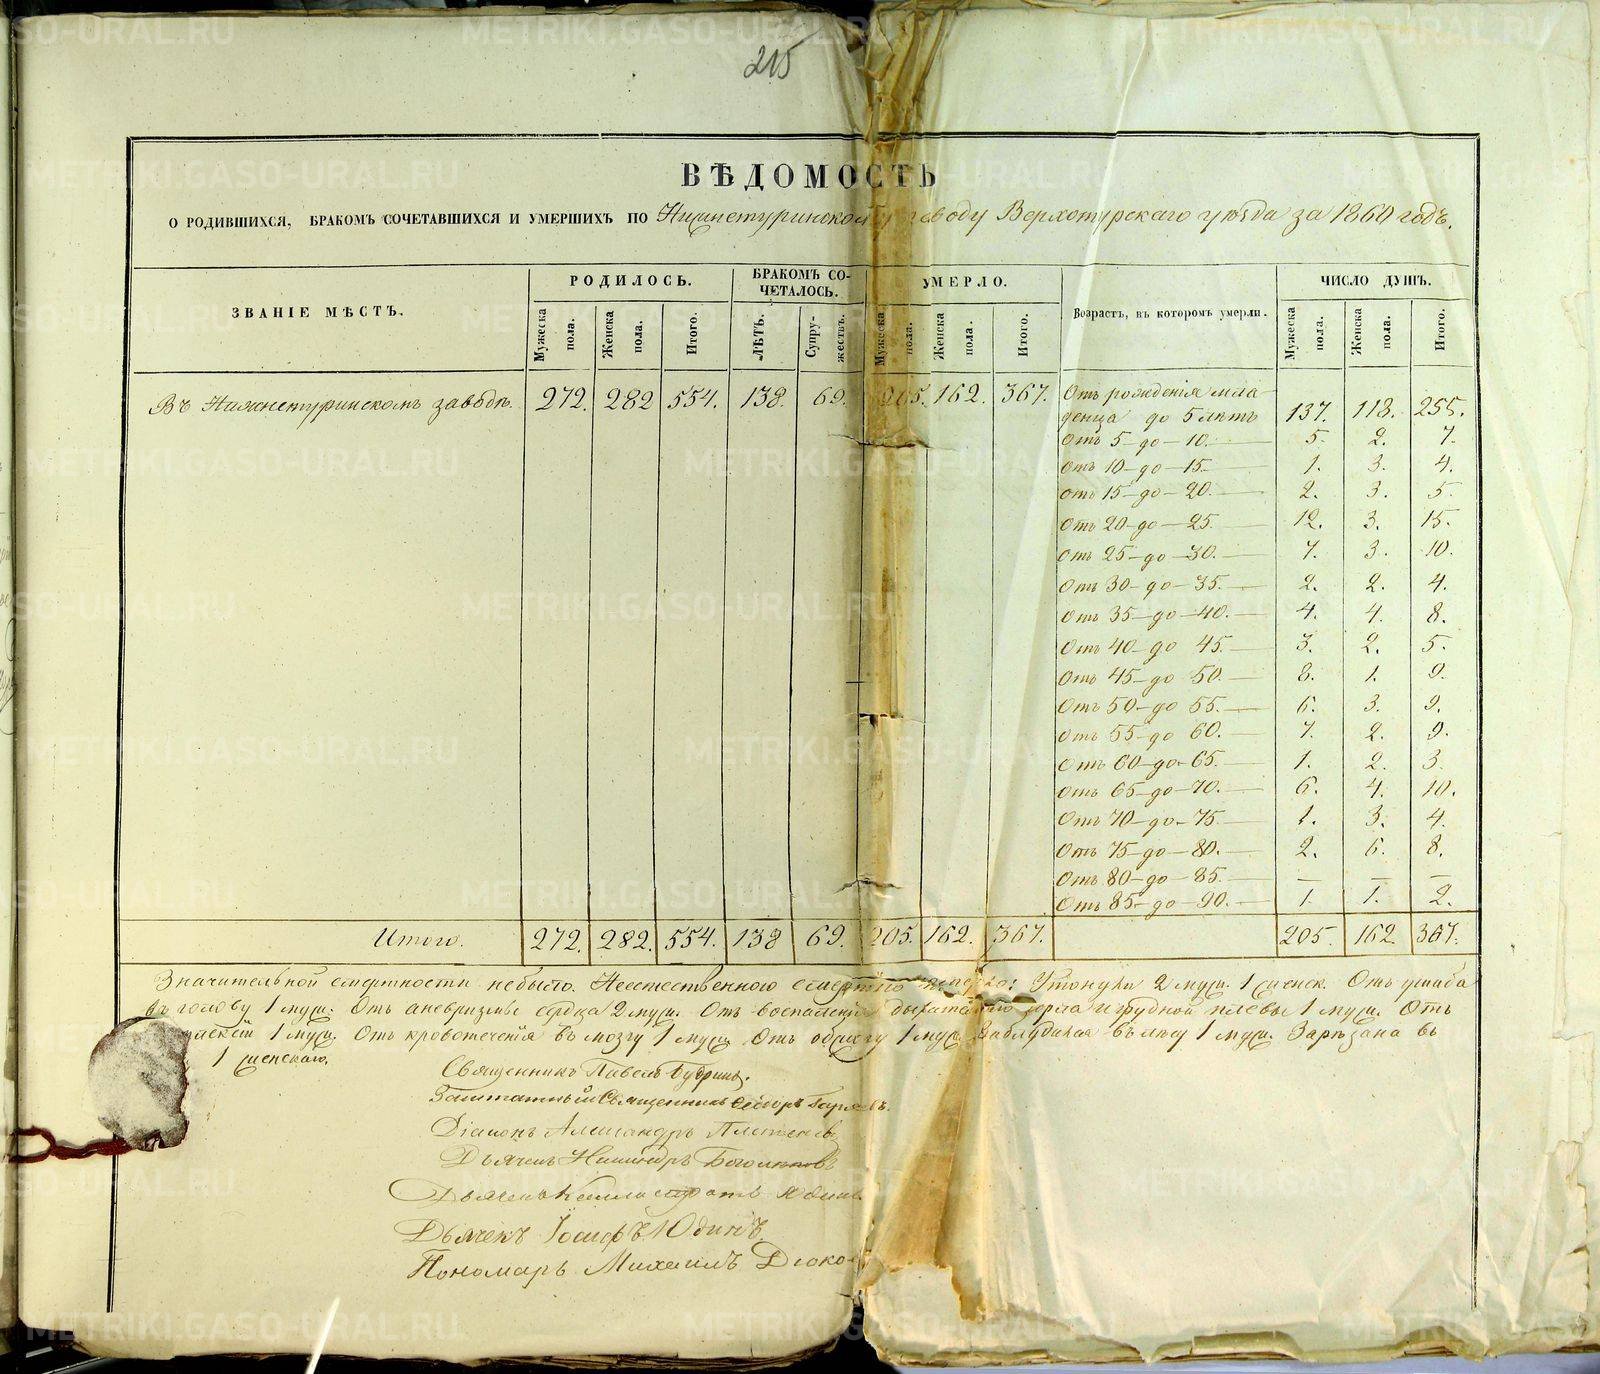 215
ВѢДОМОСТЬ
О РОДИВШИХСЯ, БРАКОМЪ СОЧЕТАВШИХСЯ И УМЕРШИХЪ ПО Нижнетуринскому заводу Верхотурскаго уѣзда за 1860 годъ.
ЗВАНІЕ МѢСТЪ. РОДИЛОСЬ. БРАКОМЪ СО-ЧЕТАЛОСЬ. УМЕРЛО. Возрастъ, въ которомъ умерли. ЧИСЛО ДУШЪ.
Мужеска пола. Женска пола. Итого. ЛѢТЪ. Супружествъ. Мужеска пола. Женска пола. Итого. Мужеска пола. Женска пола. Итого.
Въ Нижнетуринскомъ заводѣ. 272. 282 554. 138. 69. 205. 162. 367. Отъ рожденія мла-
денца до 5 лѣтъ 137. 118. 255.
Отъ 5 до 10. 5. 2. 7.
Отъ 10 до 15. 1. 3. 4.
Отъ 15 до 20. 2. 3. 5.
Отъ 20 до 25. 12. 3. 15.
Отъ 25 до 30. 7. 3. 10.
Отъ 30 до 35. 2. 2. 4.
Отъ 35 до 40. 4. 4. 8.
Отъ 40 до 45. 3. 2. 5.
Отъ 45 до 50. 8. 1. 9.
Отъ 50 до 55. 6. 3. 9.
Отъ 55 до 60. 7. 2. 9.
Отъ 60 до 65. 1. 2. 3.
Отъ 65 до 70. 6. 4. 10.
Отъ 70 до 75. 1. 3. 4.
Отъ 75 до 80. 2. 6. 8.
Отъ 80 до 85. — — —
Отъ 85 до 90. 1. 1. 2.
Итого. 272. 282. 554. 138 69. 205. 162. 367. 205. 162. 367.
Значительной смертности небыло. Неестественного Утонули 2 муж. 1 женск. Отъ ушиба
въ голову 1 муж. Отъ аневризмы сердца 2 муж. Отъ воспаленія горла и грудной плевы 1 муж. Отъ
1 муж. Отъ кровотеченія въ мозгу 1 муж. Отъ 1 муж. въ лѣсу 1 муж. Зарѣзана въ
1 женскаго.
Священникъ Павелъ Будринъ.
Заштатный Священникъ
Діаконъ Александръ
Дьячекъ
Дьячекъ Каллистратъ
Дьячекъ Іосифъ Юдинъ.
Пономарь Михаилъ
METRIKI.GASO-URAL.RU